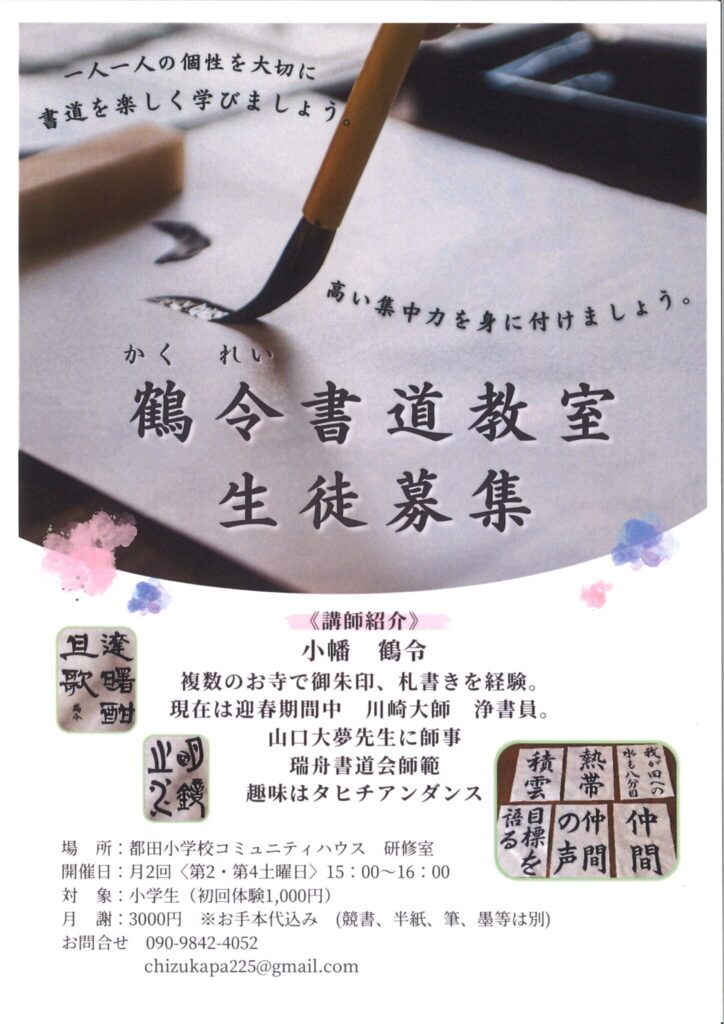 一人一人の個性を大切に
書道を楽しく学びましょう。
高い集中力を身に付けましょう。
かく れい
鶴令書道教室
生徒募集
《講師紹介》
小幡 鶴令
複数のお寺で御朱印、札書きを経験。
現在は迎春期間中 川崎大師 浄書員。
山口大夢先生に師事
瑞舟書道会師範
趣味はタヒチアンダンス
達曙酣
且歌
鶴令
明鏡
止水
我が田への
水も八分目
熱帯
積雲
仲間
仲間
の声
目標を
語る
場 所：都田小学校コミュニティハウス 研修室
開催日：月2回〈第2・第4土曜日〉15：00〜16：00
対 象：小学生（初回体験1,000円）
月 謝：3000円 ※お手本代込み (競書、半紙、筆、墨等は別)
お問合せ 090-9842-4052
chizukapa225@gmail.com